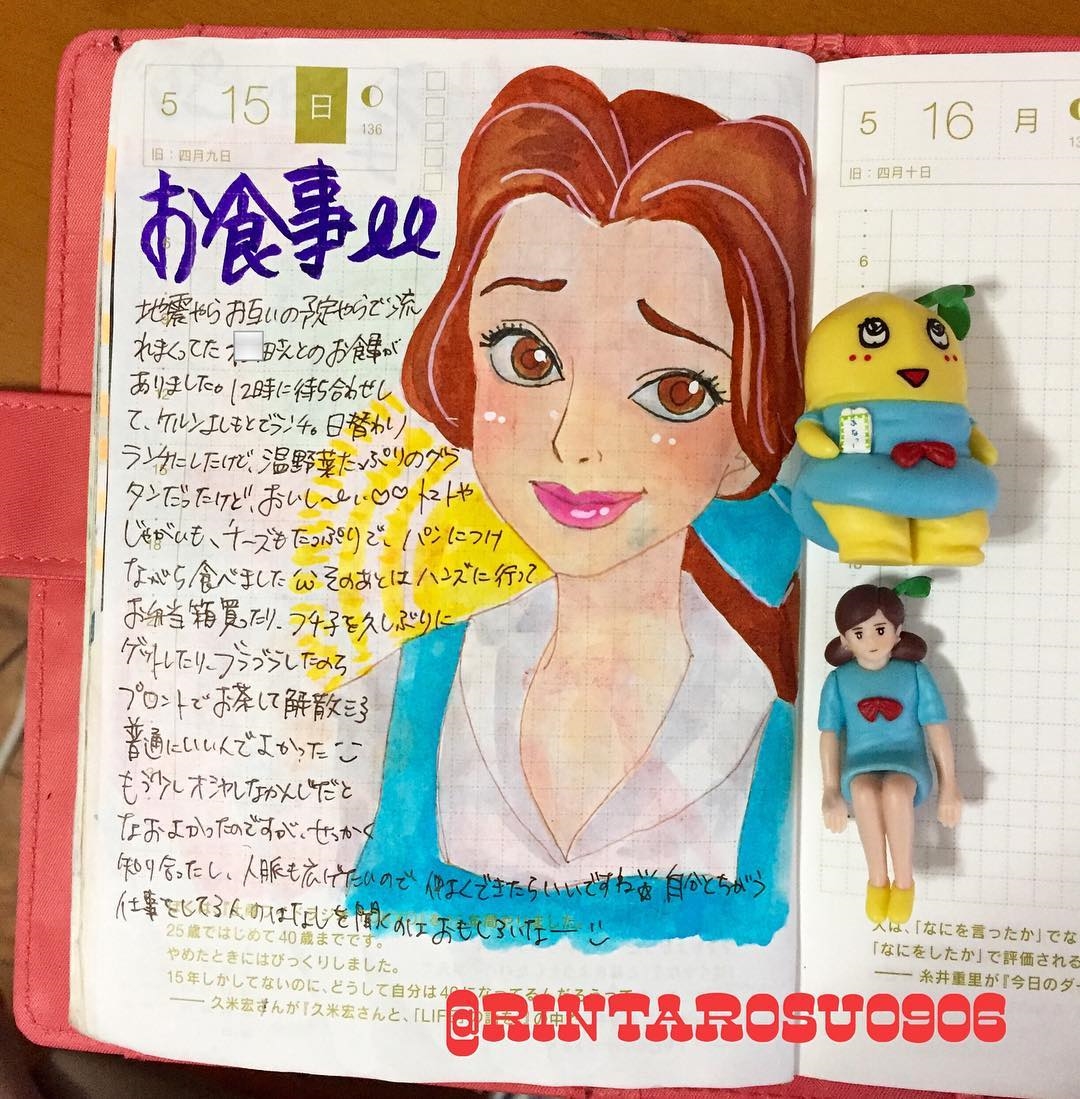 5 15 日
136
旧：四月九日
お食事
地震やら お互いの予定やらで流
れまくってた 田さんとのお食事が
ありました。12時に待ち合わせし
て、ケルンよしもとでランチ。日替わり
ランチにしたけど、温野菜たっぷりのグラ
タンだったけど、おいし〜い♡♡ トマトや
じゃがいも、チーズもたっぷりで、パンにつけ
ながら食べました ω そのあとは ハンズに行って
お弁当箱買ったり、フチ子を久しぶりに
ゲットしたり、ブラブラしたのち
プロントでお茶して解散
普通にいいんでよかった
もう少しオシャレなかんじだと
なおよかったのですが、せっかく
知り合ったし、人脈も広げたいので 仲よくできたらいいですね 自分とちがう
仕事をしてる人のはなしを聞くのは おもしろいなー
25歳ではじめて40歳までです。
やめたときにはびっくりしました。
15年しかしてないのに、どうして自分は40になってるんだろうって。
―― 久米宏さんが『久米宏さんと、「LIFEの中で
5 16 月
旧：四月十日
6
人は、「なにを言ったか」でな
「なにをしたか」で評価される
―― 糸井重里が『今日のダー
@RINTAROSU0906